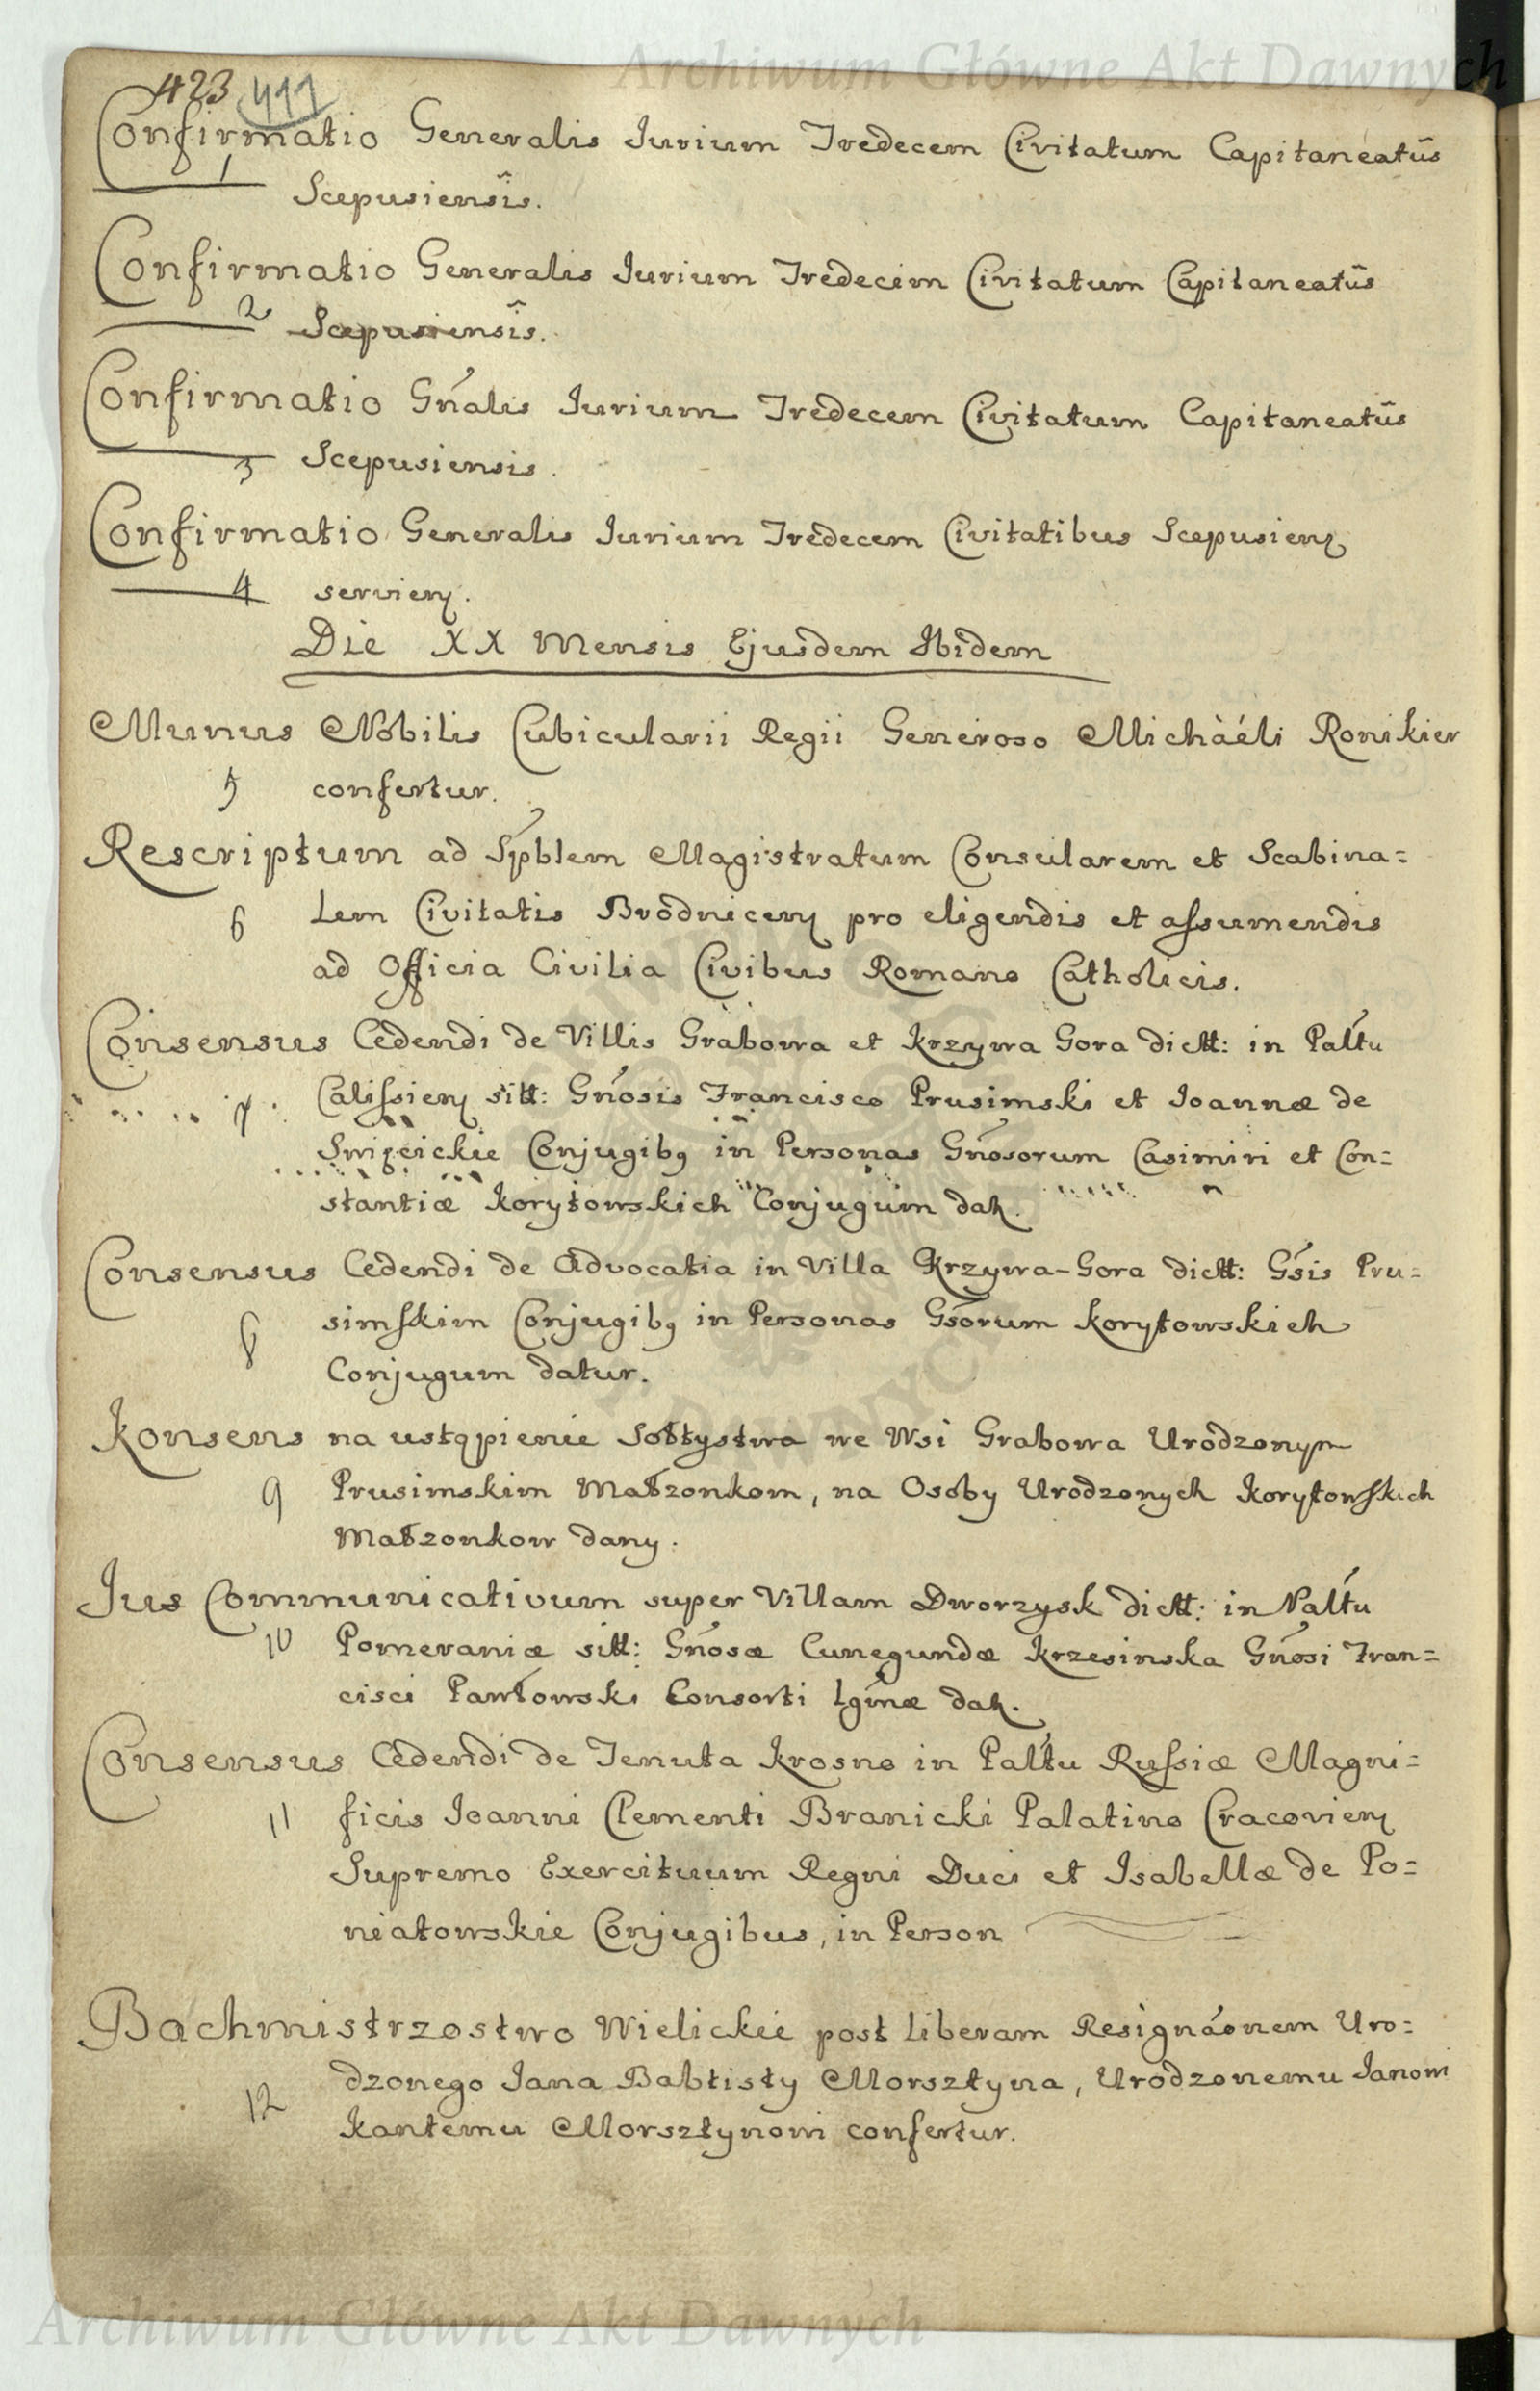 Archiwum Główne Akt Dawnych
423 411
Confirmatio Generalis Iurium Tredecem Civitatum Capitaneatûs
1 Scepusiensis.
Confirmatio Generalis Iurium Tredecim Civitatum Capitaneatûs
2 Scepusiensis.
Confirmatio Gñalis Iurium Tredecem Civitatum Capitaneatûs
3 Scepusiensis.
Confirmatio Generalis Iurium Tredecem Civitatibus Scepusien
4 servien.
Die XX Mensis Ejusdem Ibidem
Munus Nobilis Cubicularii Regii Generoso Michàéli Ronikier
5 confertur.
Rescriptum ad Spblem Magistratum Consularem et Scabina=
6 lem Civitatis Brodnicen pro eligendis et assumendis
ad Officia Civilia Civibus Romano Catholicis.
Consensus Cedendi de Villis Grabowa et Krzywa Gora dictt: in Paltu
7. Calissien sitt: Gnosis Francisco Prusimski et Joannæ de
Swięcickie Conjugibq in Personas Gnosorum Casimiri et Con=
stantiæ Korytowskich Conjugum dat.
Consensus Cedendi de Advocatia in Villa Krzywa-Gora dictt: Gsis Pru=
8 simskim Conjugibq in Personas Gsorum Korytowskich
Conjugum datur.
Konsens na ustąpienie Sołtystwa we Wsi Grabowa Urodzonym
9 Prusimskim Małzonkom, na Osoby Urodzonych Korytowskich
Małzonkow dany.
Jus Communicativum super Villam Dworzysk dictt: in Paltu
10 Pomeraniæ sitt: Gnosæ Cunegundæ Krzesinska Gnosi Fran=
cisci Pawłowski Consorti lginæ dat.
Consensus Cedendi de Tenuta Krosno in Paltu Russiæ Magni=
11 ficis Joanni Clementi Branicki Palatino Cracovien
Supremo Exercituum Regni Duci et Isabellæ de Po=
niatowskie Conjugibus, in Person
Bachmistrzostwo Wielickie post liberam Resignáonem Uro=
12 dzonego Jana Babtisty Morsztyna, Urodzonemu Janowi
Kantemu Morsztynowi confertur.
Archiwum Główne Akt Dawnych